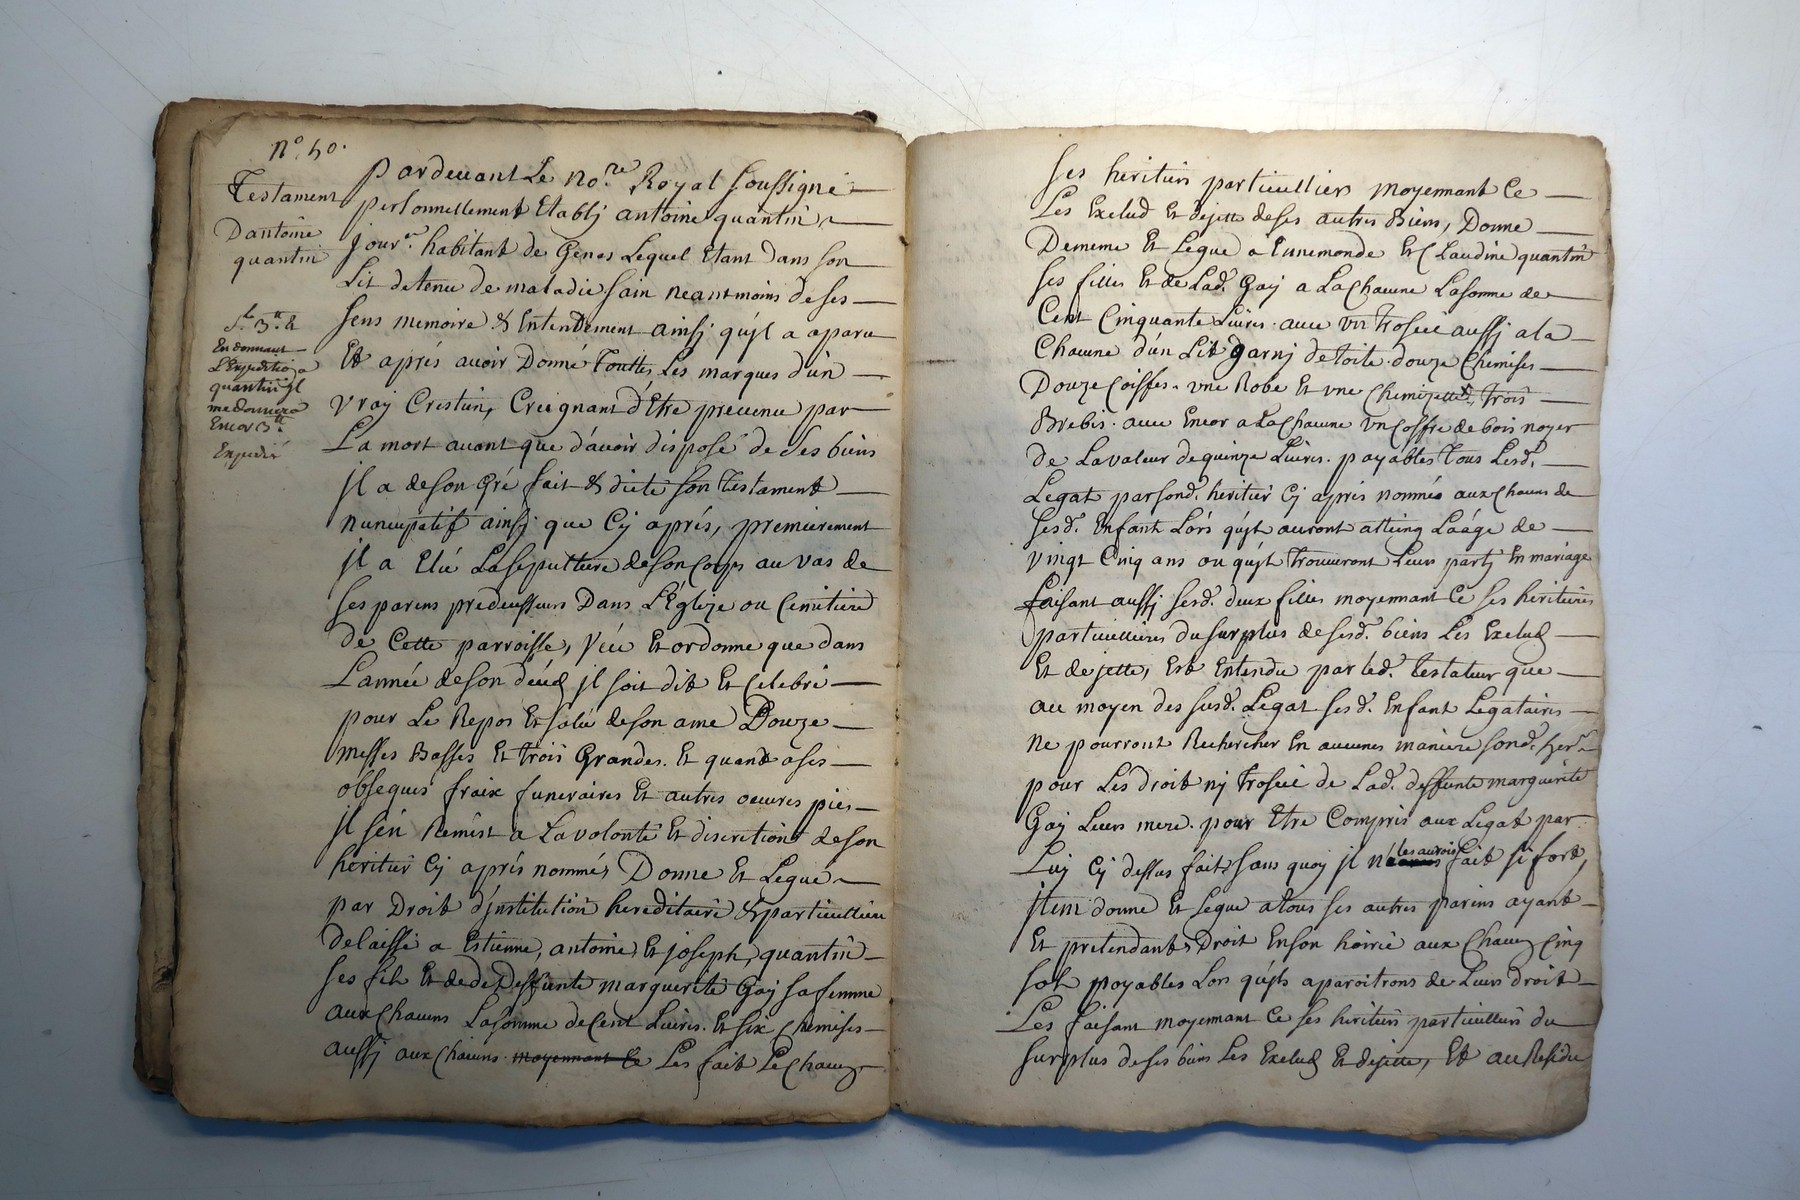 N.° 50.
Testament
D'antoine
quantin
3.tt &
En donnant
L'Expedition a
quantin jl
me donnera
Encor 3.tt
Expedié
Pardeuant Le No.re Royal soussigné
personnellement Etablj antoine quantin
jour.er habitant de Genas Lequel Etant dans son
Lit detenu de maladie sain neantmoins de ses
sens memoire & Entendement ainsj qu'jl a aparu
Et aprés auoir Donné Touttes Les marques d'un
vray Crestien, Creignant d'Etre preuenu par
La mort auant que d'auoir disposé de ses biens
jl a de son Gré fait & dicté son Testament
nuncupatif ainsj que Cy aprés, premierement
jl a Elû La sepulture de son Corps au vas de
ses parens predecesseurs Dans L'Eglize ou Cemetiere
de Cette parroisse, Veu Et ordonne que dans
L'année de son déced jl soit dit Et Celebré
pour Le Repos Et salu de son ame Douze
messes Basses Et trois Grandes. Et quand a ses
obseques fraix funeraires Et autres oeuvres pies
jl s'en Remest a La volonté Et discretion de son
heritier Cy aprés nommés Donne Et Legue
par Droit d'jnstitution hereditaire & particulliere
delaissé a Estienne, antoine, Et joseph, quantin
ses fils Et de deffunte marguerite Gaj sa femme
aux Chacuns La somme de Cent Liures. Et six Chemises
aussj aux Chacuns moyennant Ce Les fait Le Chacun
ses heritiers particulliers moyennant Ce
Les Exclud Et dejette de ses autres Biens, Donne
De meme Et Legue a Ennemonde Et Claudine quantin
ses filles Et de Lad. Gaj a La Chacune La somme de
Cent Cinquante Liures. auec vn troseé aussj a la
Chacune d'un Lit garnj de toile. douze Chemises
Douze Coiffes. vne Robe Et vne Chemizette, trois
Brebis. auec Encor a La Chacune vn Coffre de bois noyer
de La valeur de quinze Liures. payables tous Lesd.
Legat par sond. heritier Cy aprés nommés aux Chacuns de
sesd. Enfant Lors qu'jl auront atteing L'aáge de
vingt Cinq ans ou qu'jl trouueront Leurs partj En mariage
faisant aussj sesd. deux filles moyennant Ce ses heritieres
particullieres du surplus de sesd. biens Les Exclud
Et dejette, Est Entendu par led. Testateur que
au moyen des susd. Legat sesd. Enfant Legataires
Ne pourront Rechercher En aucunes maniere sond. her.er
pour Les droit nj troseé de Lad. deffunte marguerite
Gaj Leurs mere. pour Etre Compris aux Legat par
Luy Cy dessus fait, sans quoy jl n' les aurois fait si fort,
jtem donne Et Legue a tous ses autres parens ayant
Et pretendants Droit En son hoirie aux Chacun Cinq
sols payables Lors qu'jls aparoitrons de Leurs droit
Les faisant moyennant Ce ses heritiers particulliers du
surplus de ses biens Les Exclud Et dejette, Et au Residu